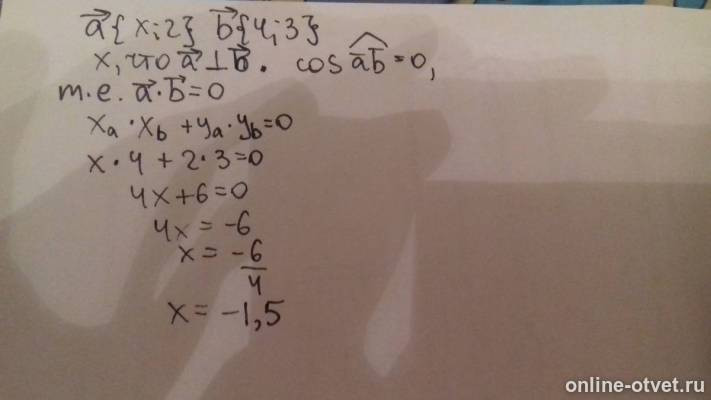 a⃗{x;2} b⃗{4;3}
x, что a⃗⊥b⃗. cos a⃗b⃗=0,
т.е. a⃗·b⃗=0
xₐ·x_b+yₐ·y_b=0
x·4+2·3=0
4x+6=0
4x=-6
x=-6/4
x=-1,5
online-otvet.ru